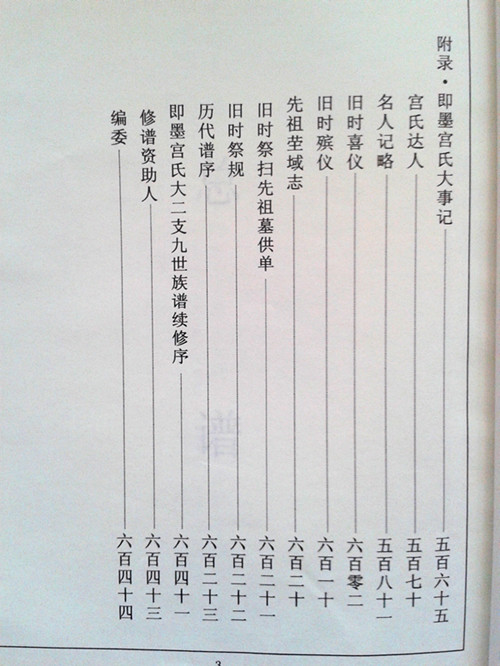 附录·即墨宫氏大事记——五百六十五
宫氏达人——五百七十
名人记略——五百八十一
旧时喜仪——六百零二
旧时殡仪——六百一十
先祖茔域志——六百二十
旧时祭扫先祖墓供单——六百二十一
旧时祭规——六百二十二
历代谱序——六百二十三
即墨宫氏大二支九世族谱续修序——六百四十一
修谱资助人——六百四十三
编委——六百四十四
3